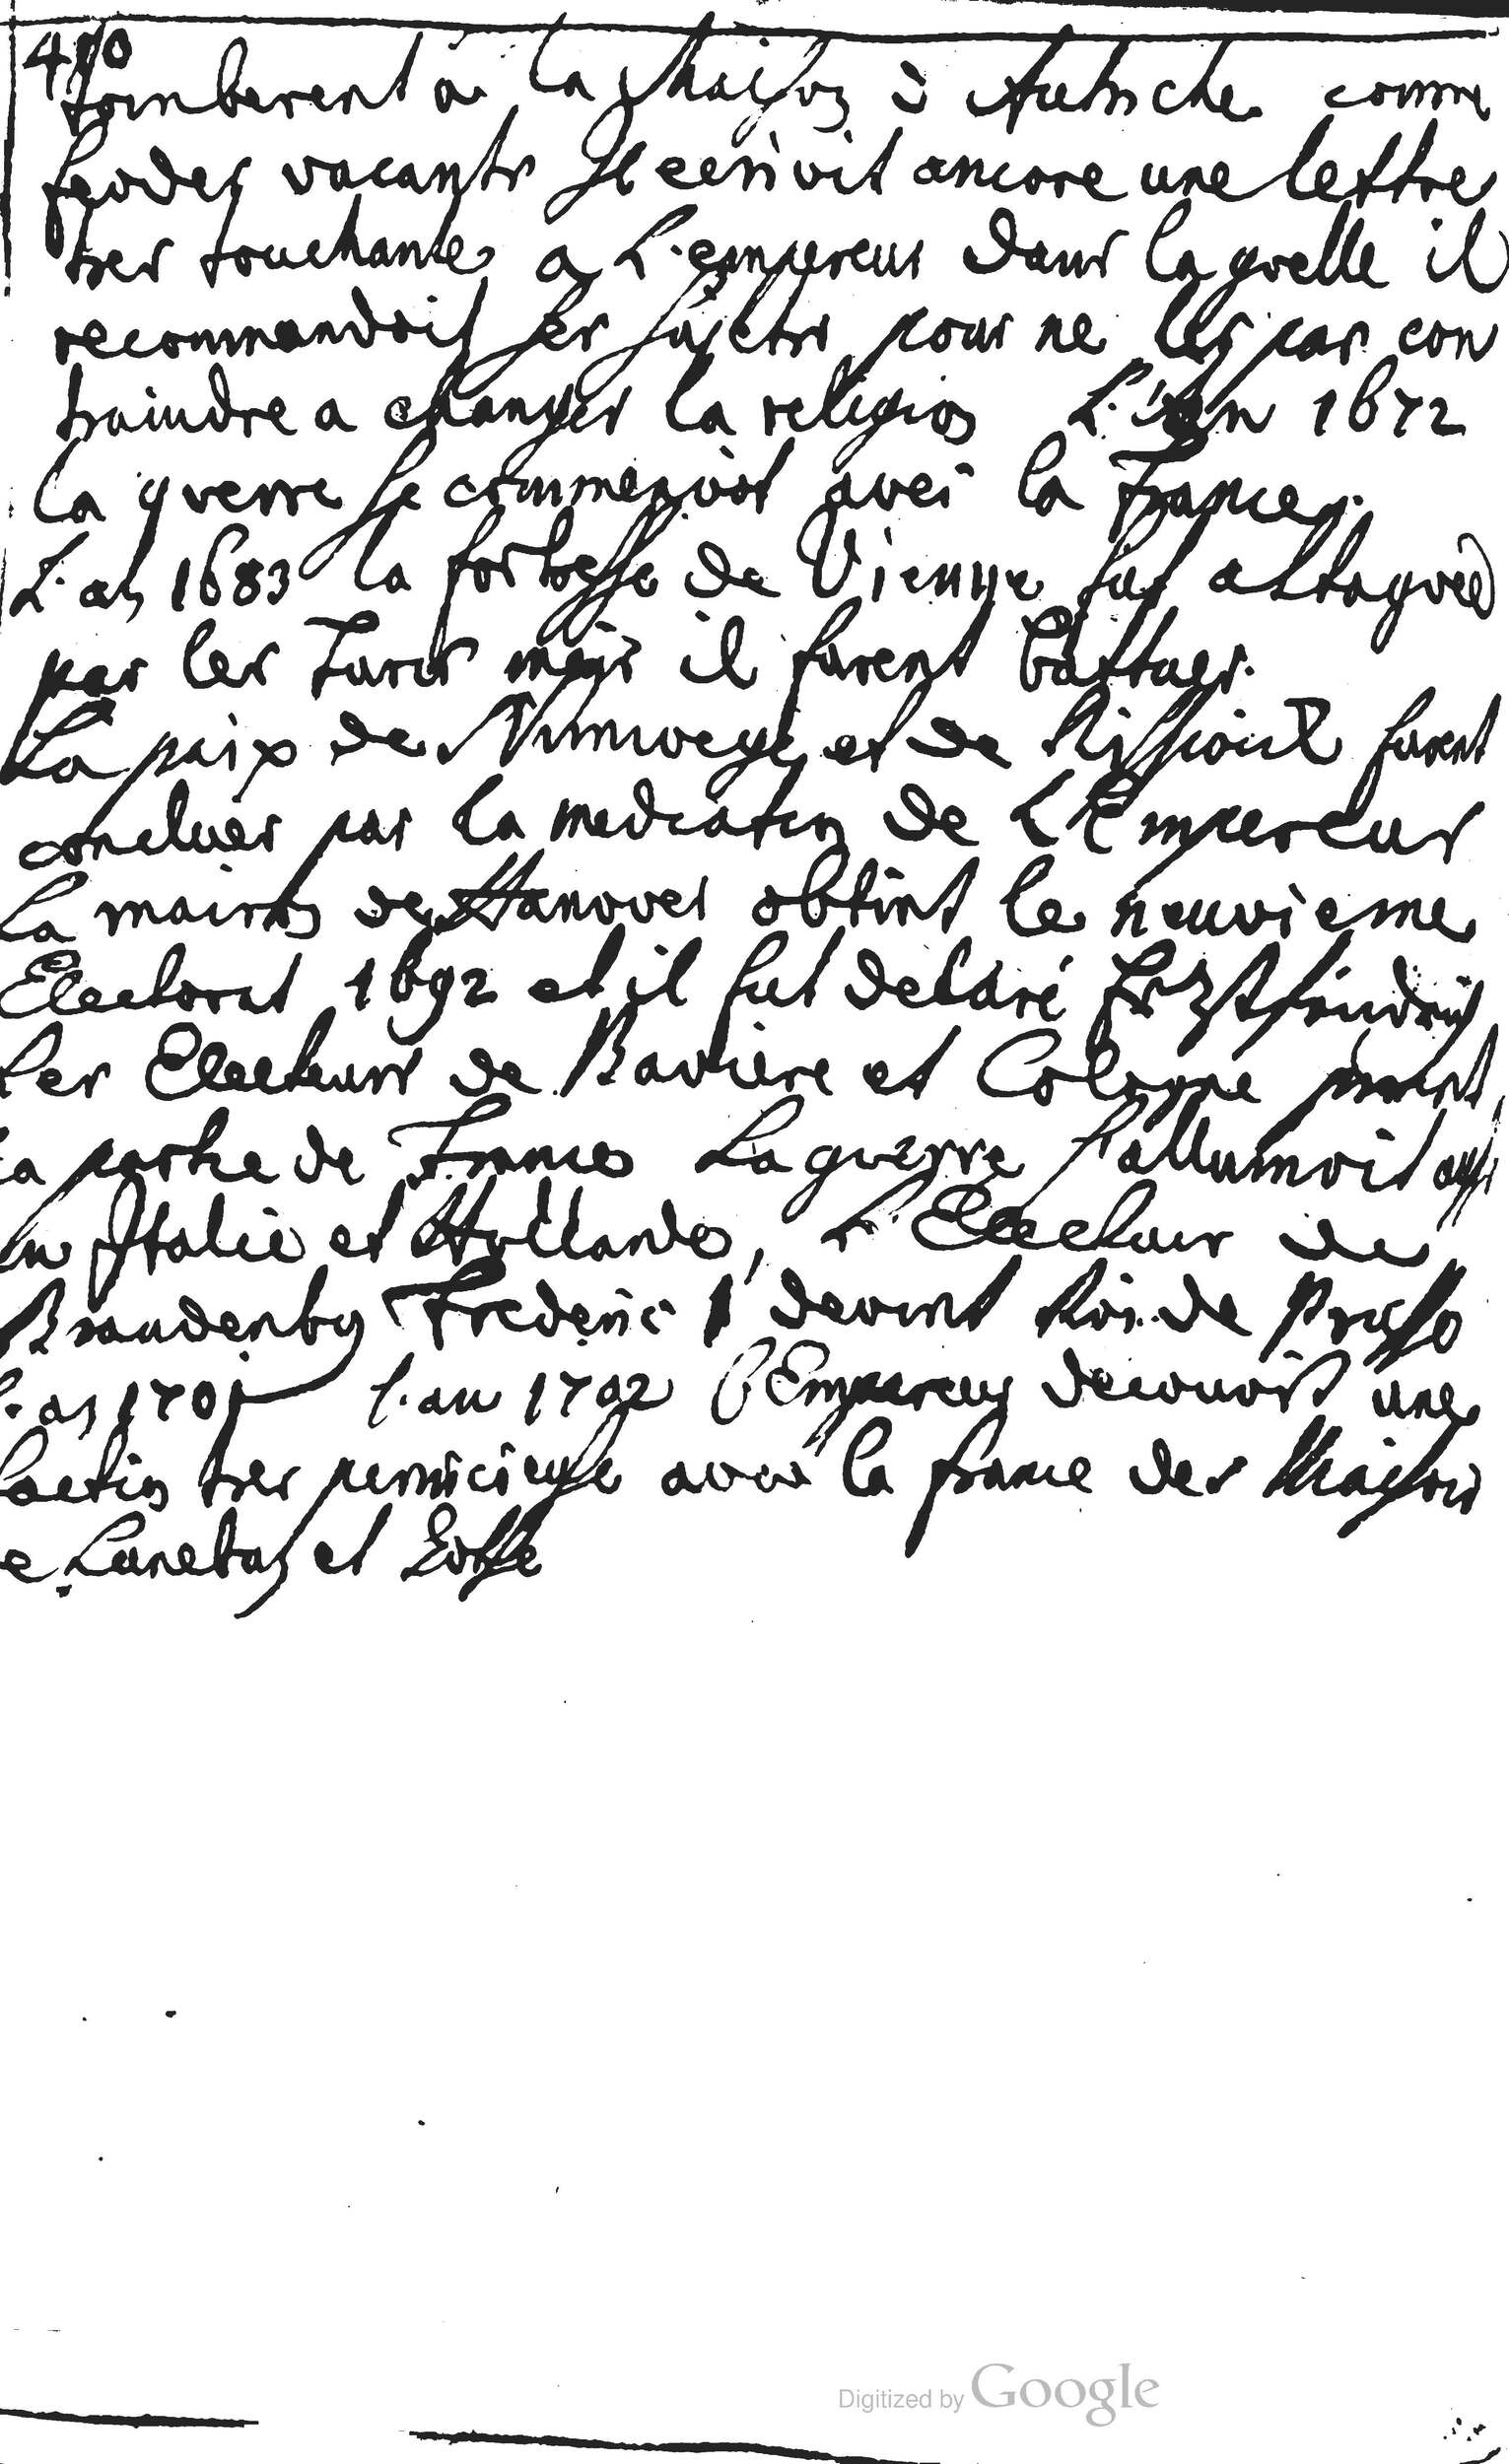 410
tomberent a la Maison d'Autriche comme
feodes vacants Il ecrivit ancore une lettre
tres touchante a L'empereur dans la quelle il
recommandoit ses sujets pour ne les pas con
traindre a changer la religion L'an 1672
la guerre se commençoit avec la France.
L'an 1683 la fortresse de Vienne fut attaqvée
par les Turcs mais il furent battues.
La paix de Nimwege et de furent
conclues par la mediation de L'Empereur
La maison de Hanover obtint le neuvieme
Electorat 1692 et il fut declaré
Les Electeurs de Baviere et Cologne
la partie de France La guerre s'allumoit
en Italie et Hollande, L'Electeur de
Brandenbg Frederic I devint Roi de Prusse
l'an 1701 l'an 1702 l'Empereur decouvrit une
tres pernicieuse avec la france des Maisons
et
Digitized by Google